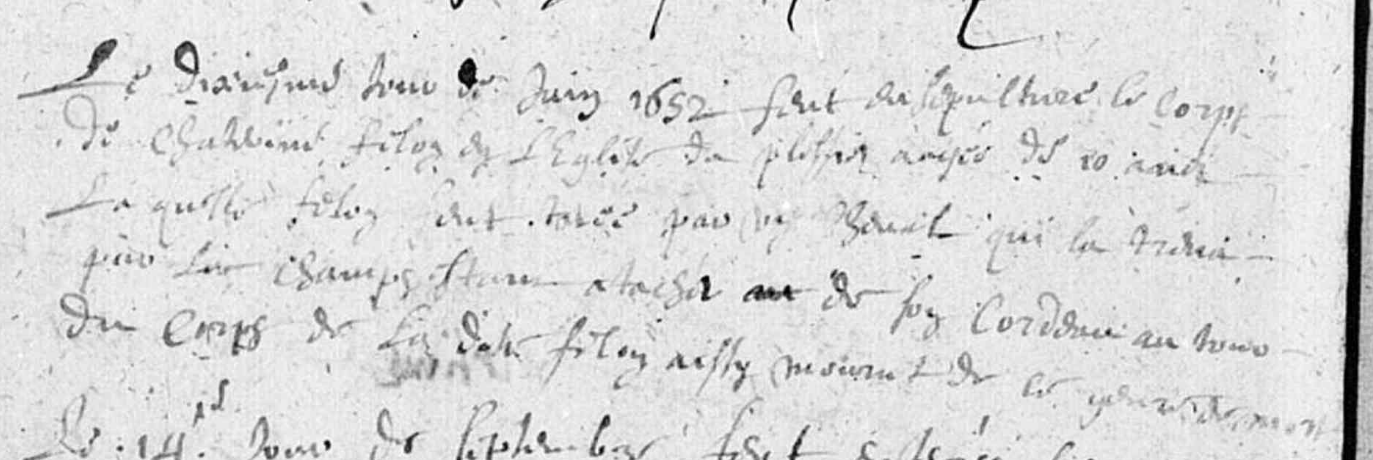 Le dixiesme jour de Juin 1652 feut ensepulturé le corps
de filoz en l'Eglise du plessier aagée de 20 ans
Laquelle filoz feut tuée par un cheval qui la trena
par les champs estant atachée de son cordeau au tour
du corps de la dite filoz aissy mourut de ce genre de mort
Le 14 jour de septembre feut